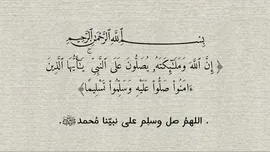 بِسْمِ ٱللَّهِ ٱلرَّحْمَٰنِ ٱلرَّحِيمِ
﴿ إِنَّ ٱللَّهَ وَمَلَٰٓئِكَتَهُۥ يُصَلُّونَ عَلَى ٱلنَّبِىِّ ۚ يَٰٓأَيُّهَا ٱلَّذِينَ
ءَامَنُوا۟ صَلُّوا۟ عَلَيْهِ وَسَلِّمُوا۟ تَسْلِيمًا ﴾
. اللهمُ صل وسلِم على نبيّنا مُحمد ﷺ .